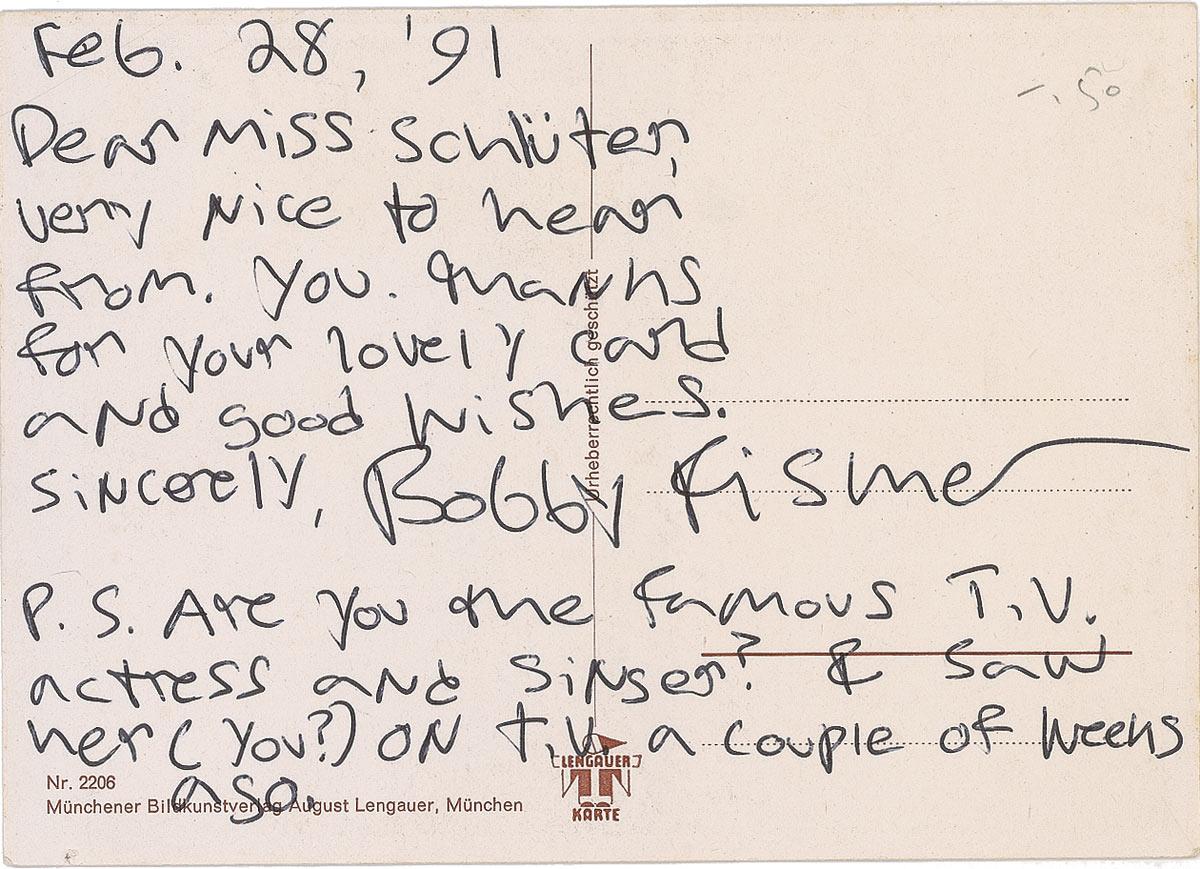 Feb. 28, '91
-.50
Dear Miss Schlüter,
very nice to hear
from. you. thanks
for your lovely card
and good wishes.
sincerely, Bobby Fisher
P.S. Are you the famous T.V.
actress and singer? I saw
her (you?) on T.V. a couple of weeks
ago.
Urheberrechtlich geschützt
Nr. 2206
Münchener Bildkunstverlag August Lengauer, München
LENGAUER
KARTE